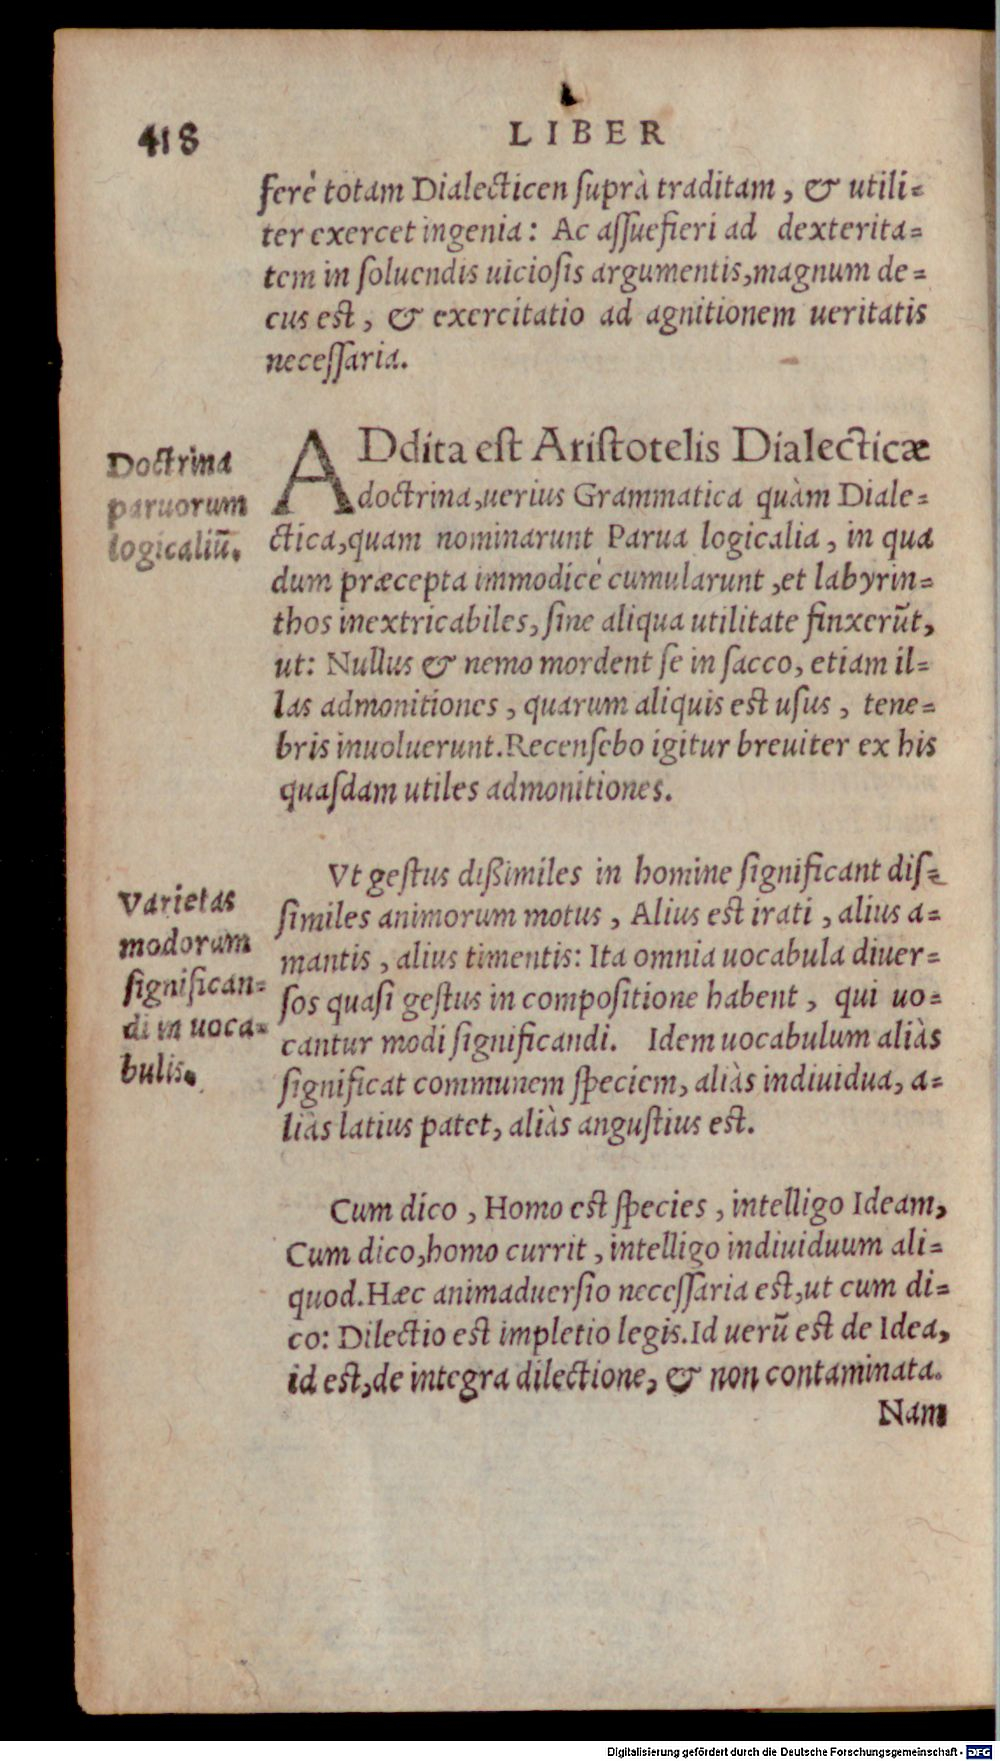 418
LIBER
ferè totam Dialecticen suprà traditam, & utili=
ter exercet ingenia: Ac assuefieri ad dexterita=
tem in soluendis uiciosis argumentis, magnum de=
cus est, & exercitatio ad agnitionem ueritatis
necessaria.
Doctrina
paruorum
logicaliū.
ADdita est Aristotelis Dialecticæ
doctrina, uerius Grammatica quàm Diale=
ctica, quam nominarunt Parua logicalia, in qua
dum præcepta immodicè cumularunt, et labyrin=
thos inextricabiles, sine aliqua utilitate finxerūt,
ut: Nullus & nemo mordent se in sacco, etiam il=
las admonitiones, quarum aliquis est usus, tene=
bris inuoluerunt. Recensebo igitur breuiter ex his
quasdam utiles admonitiones.
Varietas
modorum
significan=
di in uoca=
bulis.
Vt gestus dißimiles in homine significant dis=
similes animorum motus, Alius est irati, alius a=
mantis, alius timentis: Ita omnia uocabula diuer=
sos quasi gestus in compositione habent, qui uo=
cantur modi significandi. Idem uocabulum aliàs
significat communem speciem, aliàs indiuidua, a=
liàs latius patet, aliàs angustius est.
Cum dico, Homo est species, intelligo Ideam,
Cum dico, homo currit, intelligo indiuiduum ali=
quod. Hæc animaduersio necessaria est, ut cum di=
co: Dilectio est impletio legis. Id uerū est de Idea,
id est, de integra dilectione, & non contaminata.
Nam
Digitalisierung gefördert durch die Deutsche Forschungsgemeinschaft - DFG